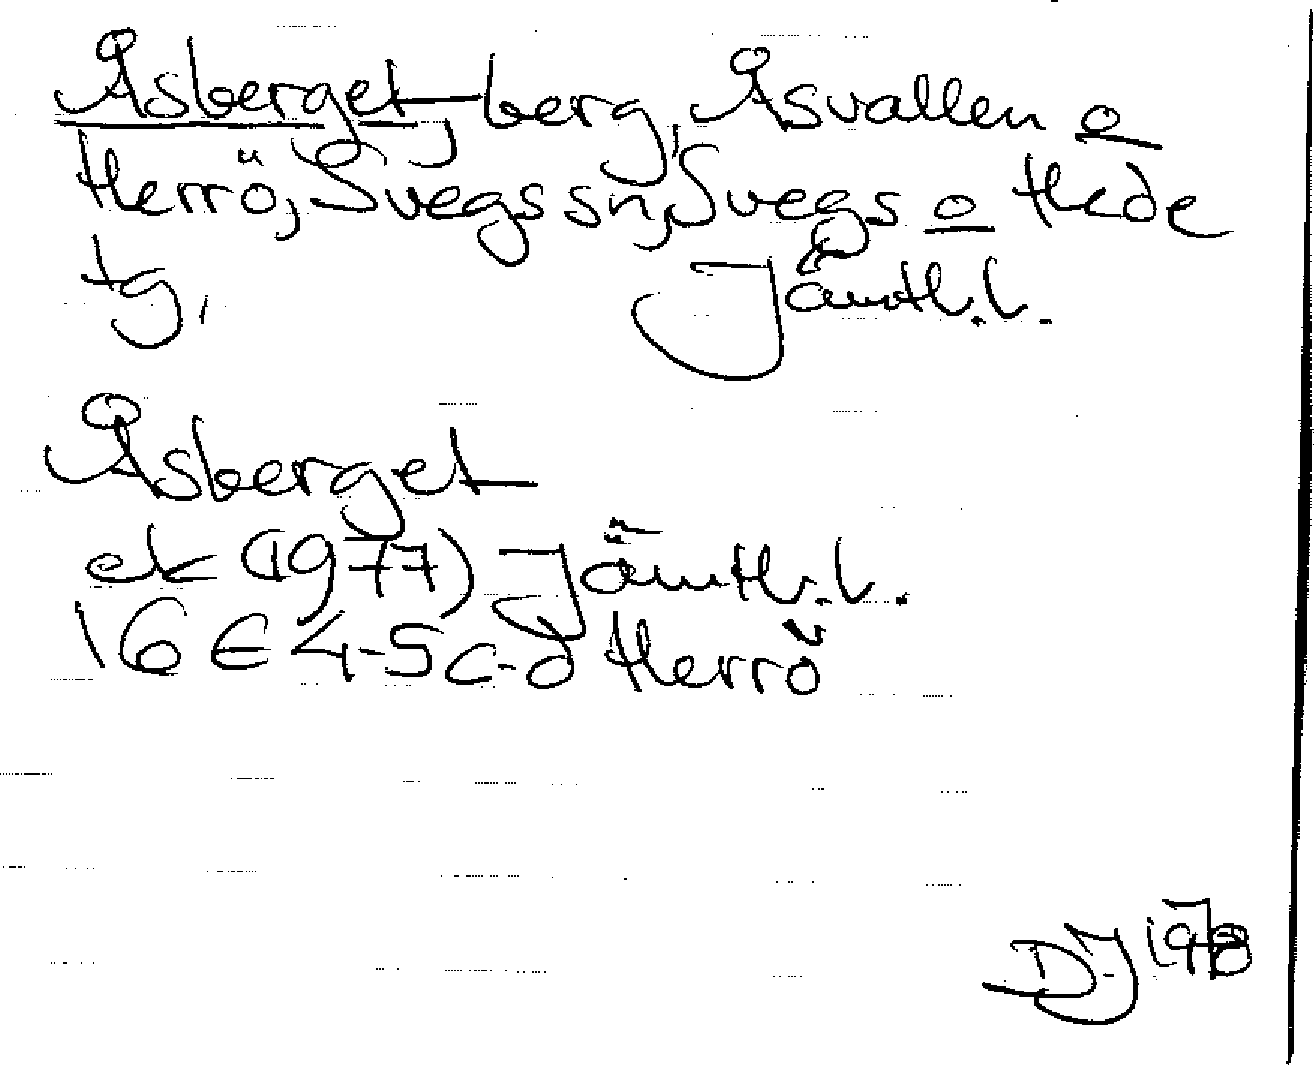 Åsberget, berg, Åsvallen o
Herrö, Svegs sn, Svegs o Hede
tg, Jämtl.l.
Åsberget
ek (1977) Jämtl.l.
16 E 4-5 c-d Herrö
DJ 1978